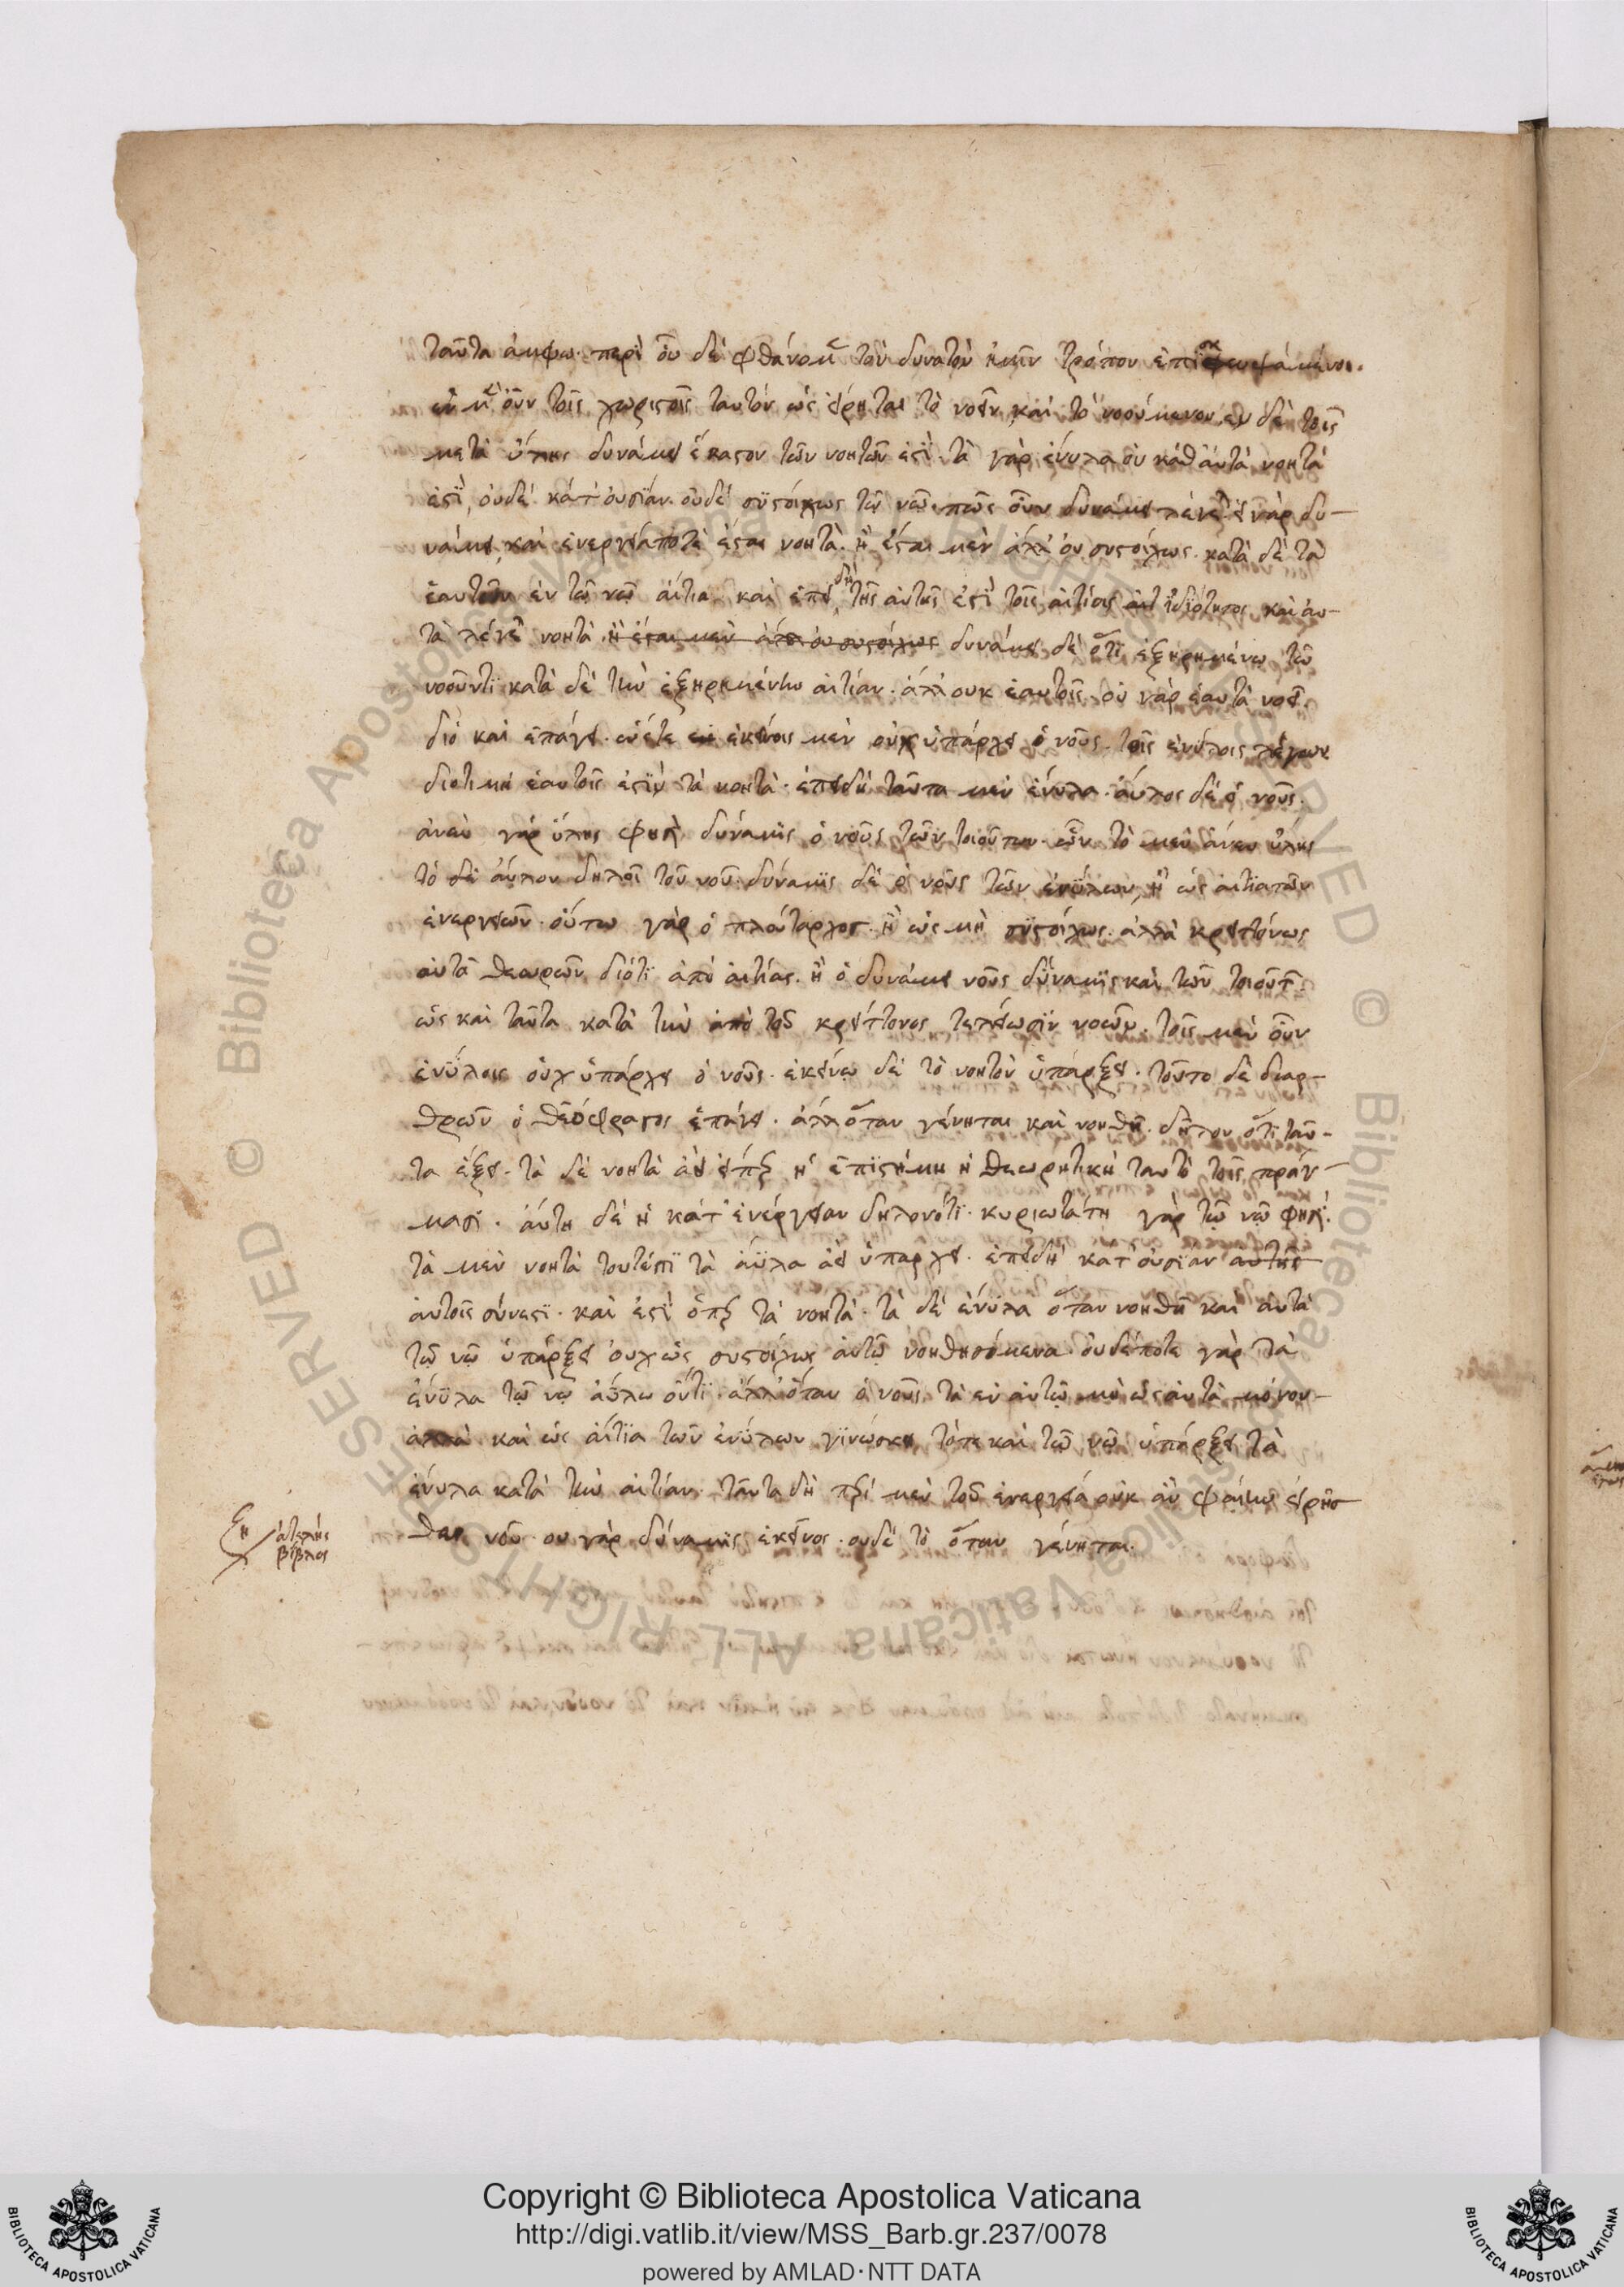 ταῦτα ἄμφω. περὶ οὗ δὲ φθάνομεν τὸν δυνατὸν ἡμῖν τρόπον ἐπισκεψάμενοι.
ἐν μὲν οὖν τοῖς χωριστοῖς ταυτόν ὡς εἴρηται τὸ νοεῖν, καὶ τὸ νοούμενον. ἐν δὲ τοῖς
μετὰ ὕλης δυνάμει ἕκαστον τῶν νοητῶν ἐστὶ. τὰ γὰρ ἔνυλα οὐ καθ' αὑτὰ νοητά
ἐστὶ, οὐδὲ κατ' οὐσίαν. οὐδὲ συστοίχως τῶ νῶ. πῶς οὖν δυνάμει λέγει. εἰ γὰρ δυ-
νάμει, καὶ ἐνεργείᾳ ποτὲ ἔσται νοητὰ. ἢ ἔσται μὲν ἀλλ' οὐ συστοίχως. κατὰ δὲ τὰ
ἑαυτῶν ἐν τῶ νῶ αἴτια. καὶ ἐπειδὴ τῆς αὐτῆς ἐστὶ τοῖς αἰτίοις ἰδιότητος καὶ αὐ-
τὰ λέγει νοητὰ. ἢ ἔσται μὲν ἀλλ' οὐ συστοίχως δυνάμει δὲ ὅτι ἐξηρημένω τῶ
νοοῦντι κατὰ δὲ τὴν ἐξηρημένην αἰτίαν. ἀλλ' οὐκ ἑαυτοῖς. οὐ γὰρ ἑαυτὰ νοεῖ.
διὸ καὶ ἐπάγει. ὥστε ἐκείνοις μὲν οὐχ ὑπάρχει ὁ νοῦς. τοῖς ἐνύλοις λέγων
διότι μὴ ἑαυτοῖς ἐστὶν τὰ νοητὰ. ἐπειδὴ ταῦτα μὲν ἔνυλα. ἄυλος δὲ ὁ νοῦς.
ἄνευ γὰρ ὕλης φησὶ δύναμις ὁ νοῦς τῶν τοιούτων. ὧν τὸ μὲν ἄνευ ὕλης
τὸ δὲ ἄυλον δηλοῖ τοῦ νοῦ. δύναμις δὲ ὁ νοῦς τῶν ἐνύλων, ἢ ὡς αἰτιατῶν
ἐνεργειῶν. οὕτω γὰρ ὁ πλούταρχος. ἢ ὡς μὴ συστοίχως. ἀλλὰ κρειττόνως
αὐτὰ θεωρῶν διότι ἀπὸ αἰτίας. ἢ ὁ δυνάμει νοῦς δύναμις καὶ τῶν τοιούτων.
ὡς καὶ ταῦτα κατὰ τὴν ἀπὸ τοῦ κρείττονος τελείωσιν νοῶν. τοῖς μὲν οὖν
ἐνύλοις οὐχ ὑπάρχει ὁ νοῦς. ἐκείνῳ δὲ τὸ νοητὸν ὑπάρξει. τοῦτο δὲ διαρ-
θρῶν ὁ θεόφραστος ἐπάγει. ἀλλ' ὅταν γένηται καὶ νοηθῆ. δῆλον ὅτι ταῦ-
τα ἕξει. τὰ δὲ νοητὰ ἀεὶ εἴπερ ἡ ἐπιστήμη ἡ θεωρητικὴ ταυτὸ τοῖς πράγ-
μασι. αὕτη δὲ ἡ κατ' ἐνέργειαν δηλονότι. κυριωτάτη γὰρ τῶ νῶ φησὶ.
τὰ μὲν νοητὰ τουτέστι τὰ ἄυλα ἀεὶ ὑπάρχει. ἐπειδὴ κατ' οὐσίαν αὐτῆς
αὐτοῖς σύνεστι. καὶ ἐστὶ ὅπερ τὰ νοητὰ. τὰ δὲ ἔνυλα ὅταν νοηθῆ καὶ αὐτὰ
τῶ νῶ ὑπάρξει οὐχ ὡς συστοίχως αὐτῶ νοηθησόμενα. οὐδέποτε γὰρ τὰ
ἔνυλα τῶ νῶ ἀύλω ὄντι. ἀλλ' ὅταν ὁ νοῦς τὰ ἐν αὐτῶ μὴ ὡς αὐτὰ μόνον-
ἀλλὰ καὶ ὡς αἴτια τῶν ἐνύλων γινώσκει, τότε καὶ τῶ νῶ ὑπάρξει τὰ
ἔνυλα κατὰ τὴν αἰτίαν. ταῦτα δὴ περὶ μὲν τοῦ ἐνεργείᾳ οὐκ ἂν φαίην εἰρῆσ
θαι νοῦ. οὐ γὰρ δύναμις ἐκεῖνος. οὐδὲ τὸ ὅταν γένηται.
ἀτελὴς
βίβλος
Copyright © Biblioteca Apostolica Vaticana
http://digi.vatlib.it/view/MSS_Barb.gr.237/0078
powered by AMLAD·NTT DATA
BIBLIOTECA APOSTOLICA VATICANA
BIBLIOTECA APOSTOLICA VATICANA